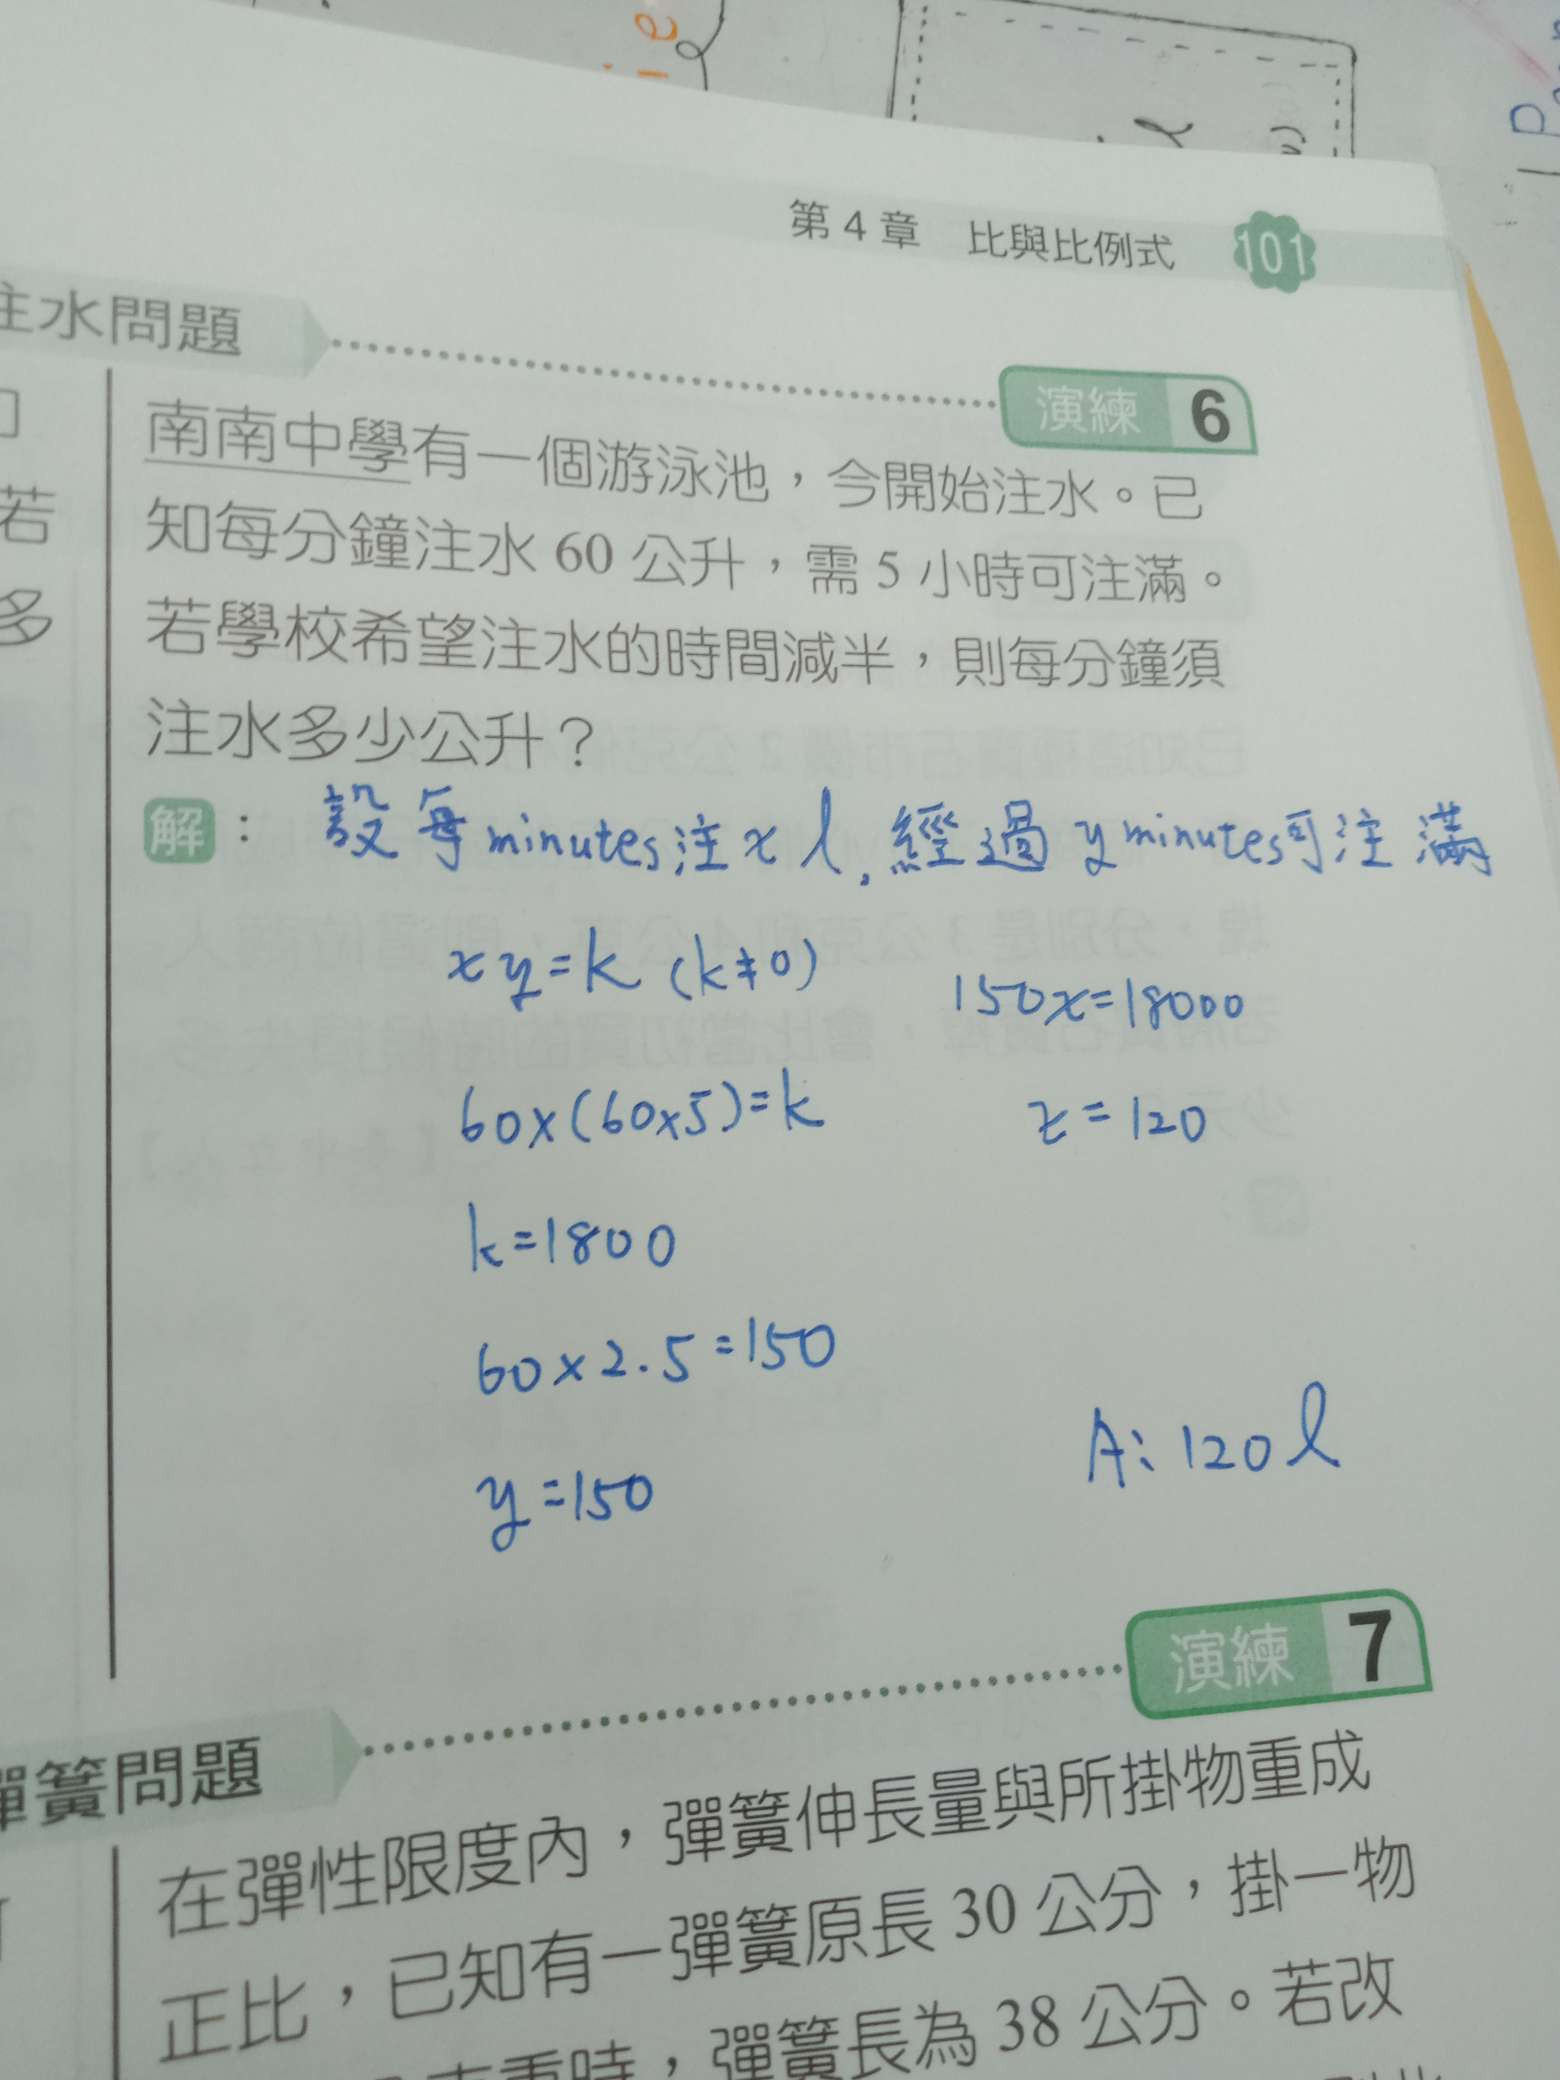 第4章 比與比例式 101
注水問題
演練 6
南南中學有一個游泳池，今開始注水。已
知每分鐘注水 60 公升，需 5 小時可注滿。
若學校希望注水的時間減半，則每分鐘須
注水多少公升？
解： 設每minutes注x l, 經過 y minutes可注滿
xy=k (k≠0)
60×(60×5)=k
k=1800
60×2.5=150
y=150
150x=18000
x=120
A: 120 l
演練 7
彈簧問題
在彈性限度內，彈簧伸長量與所掛物重成
正比，已知有一彈簧原長 30 公分，掛一物
重時，彈簧長為 38 公分。若改